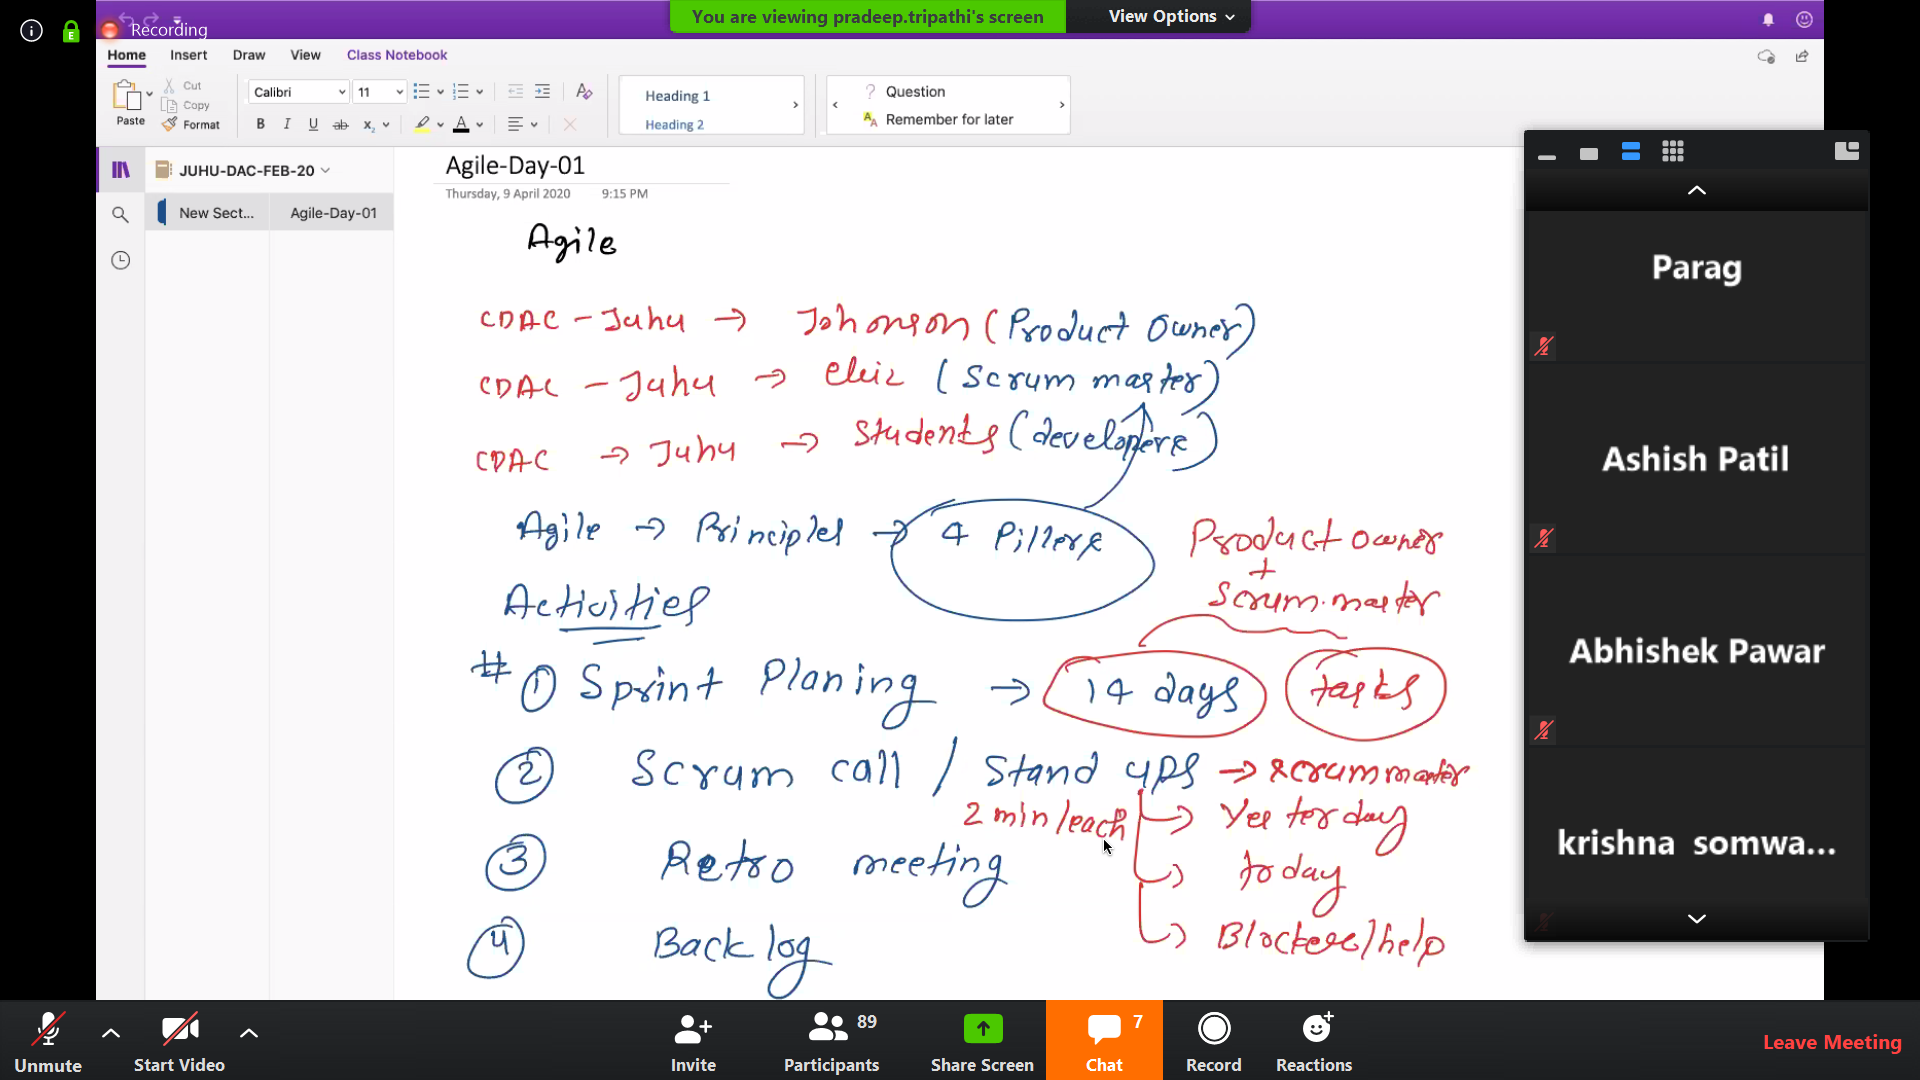 You are viewing pradeep.tripathi's screen
View Options
Recording
Home Insert Draw View Class Notebook
Paste
Cut
Copy
Format
Calibri 11
B I U ab x₂ A
Heading 1
Heading 2
Question
Remember for later
JUHU-DAC-FEB-20
New Sect...
Agile-Day-01
Agile-Day-01
Thursday, 9 April 2020 9:15 PM
Agile
CDAC - Juhu → Johonson (Product Owner)
CDAC - Juhu → (Scrum master)
CDAC → Juhu → Students (developers)
Agile → Principles → 4 Pillers
Product owner
+
Scrum.master
Activities
# ① Sprint Planing → 14 days tasks
② Scrum call / Stand ups → scrum master
2 min/each
Yesterday
③ Retro meeting
today
④ Back log
Blockers/help
Parag
Ashish Patil
Abhishek Pawar
krishna somwa...
Unmute
Start Video
Invite
Participants 89
Share Screen
Chat 7
Record
Reactions
Leave Meeting